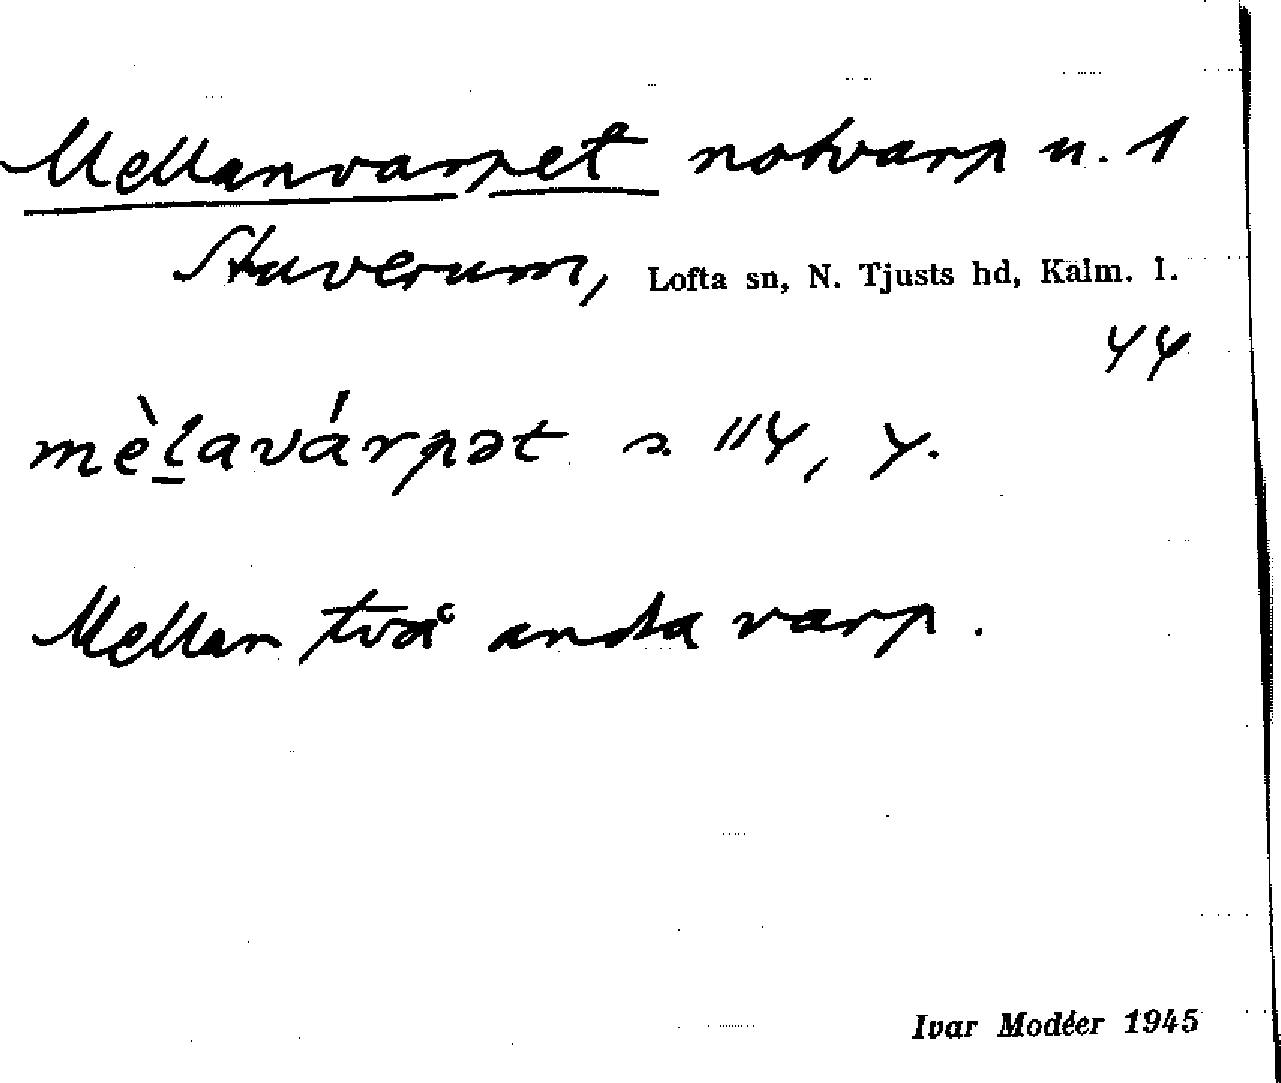 Mellanvarpet notvarp u. 1
Staverum, Lofta sn, N. Tjusts hd, Kalm. l.
44
mèl̲avárpət
Mellan två andra varp.
Ivar Modéer 1945